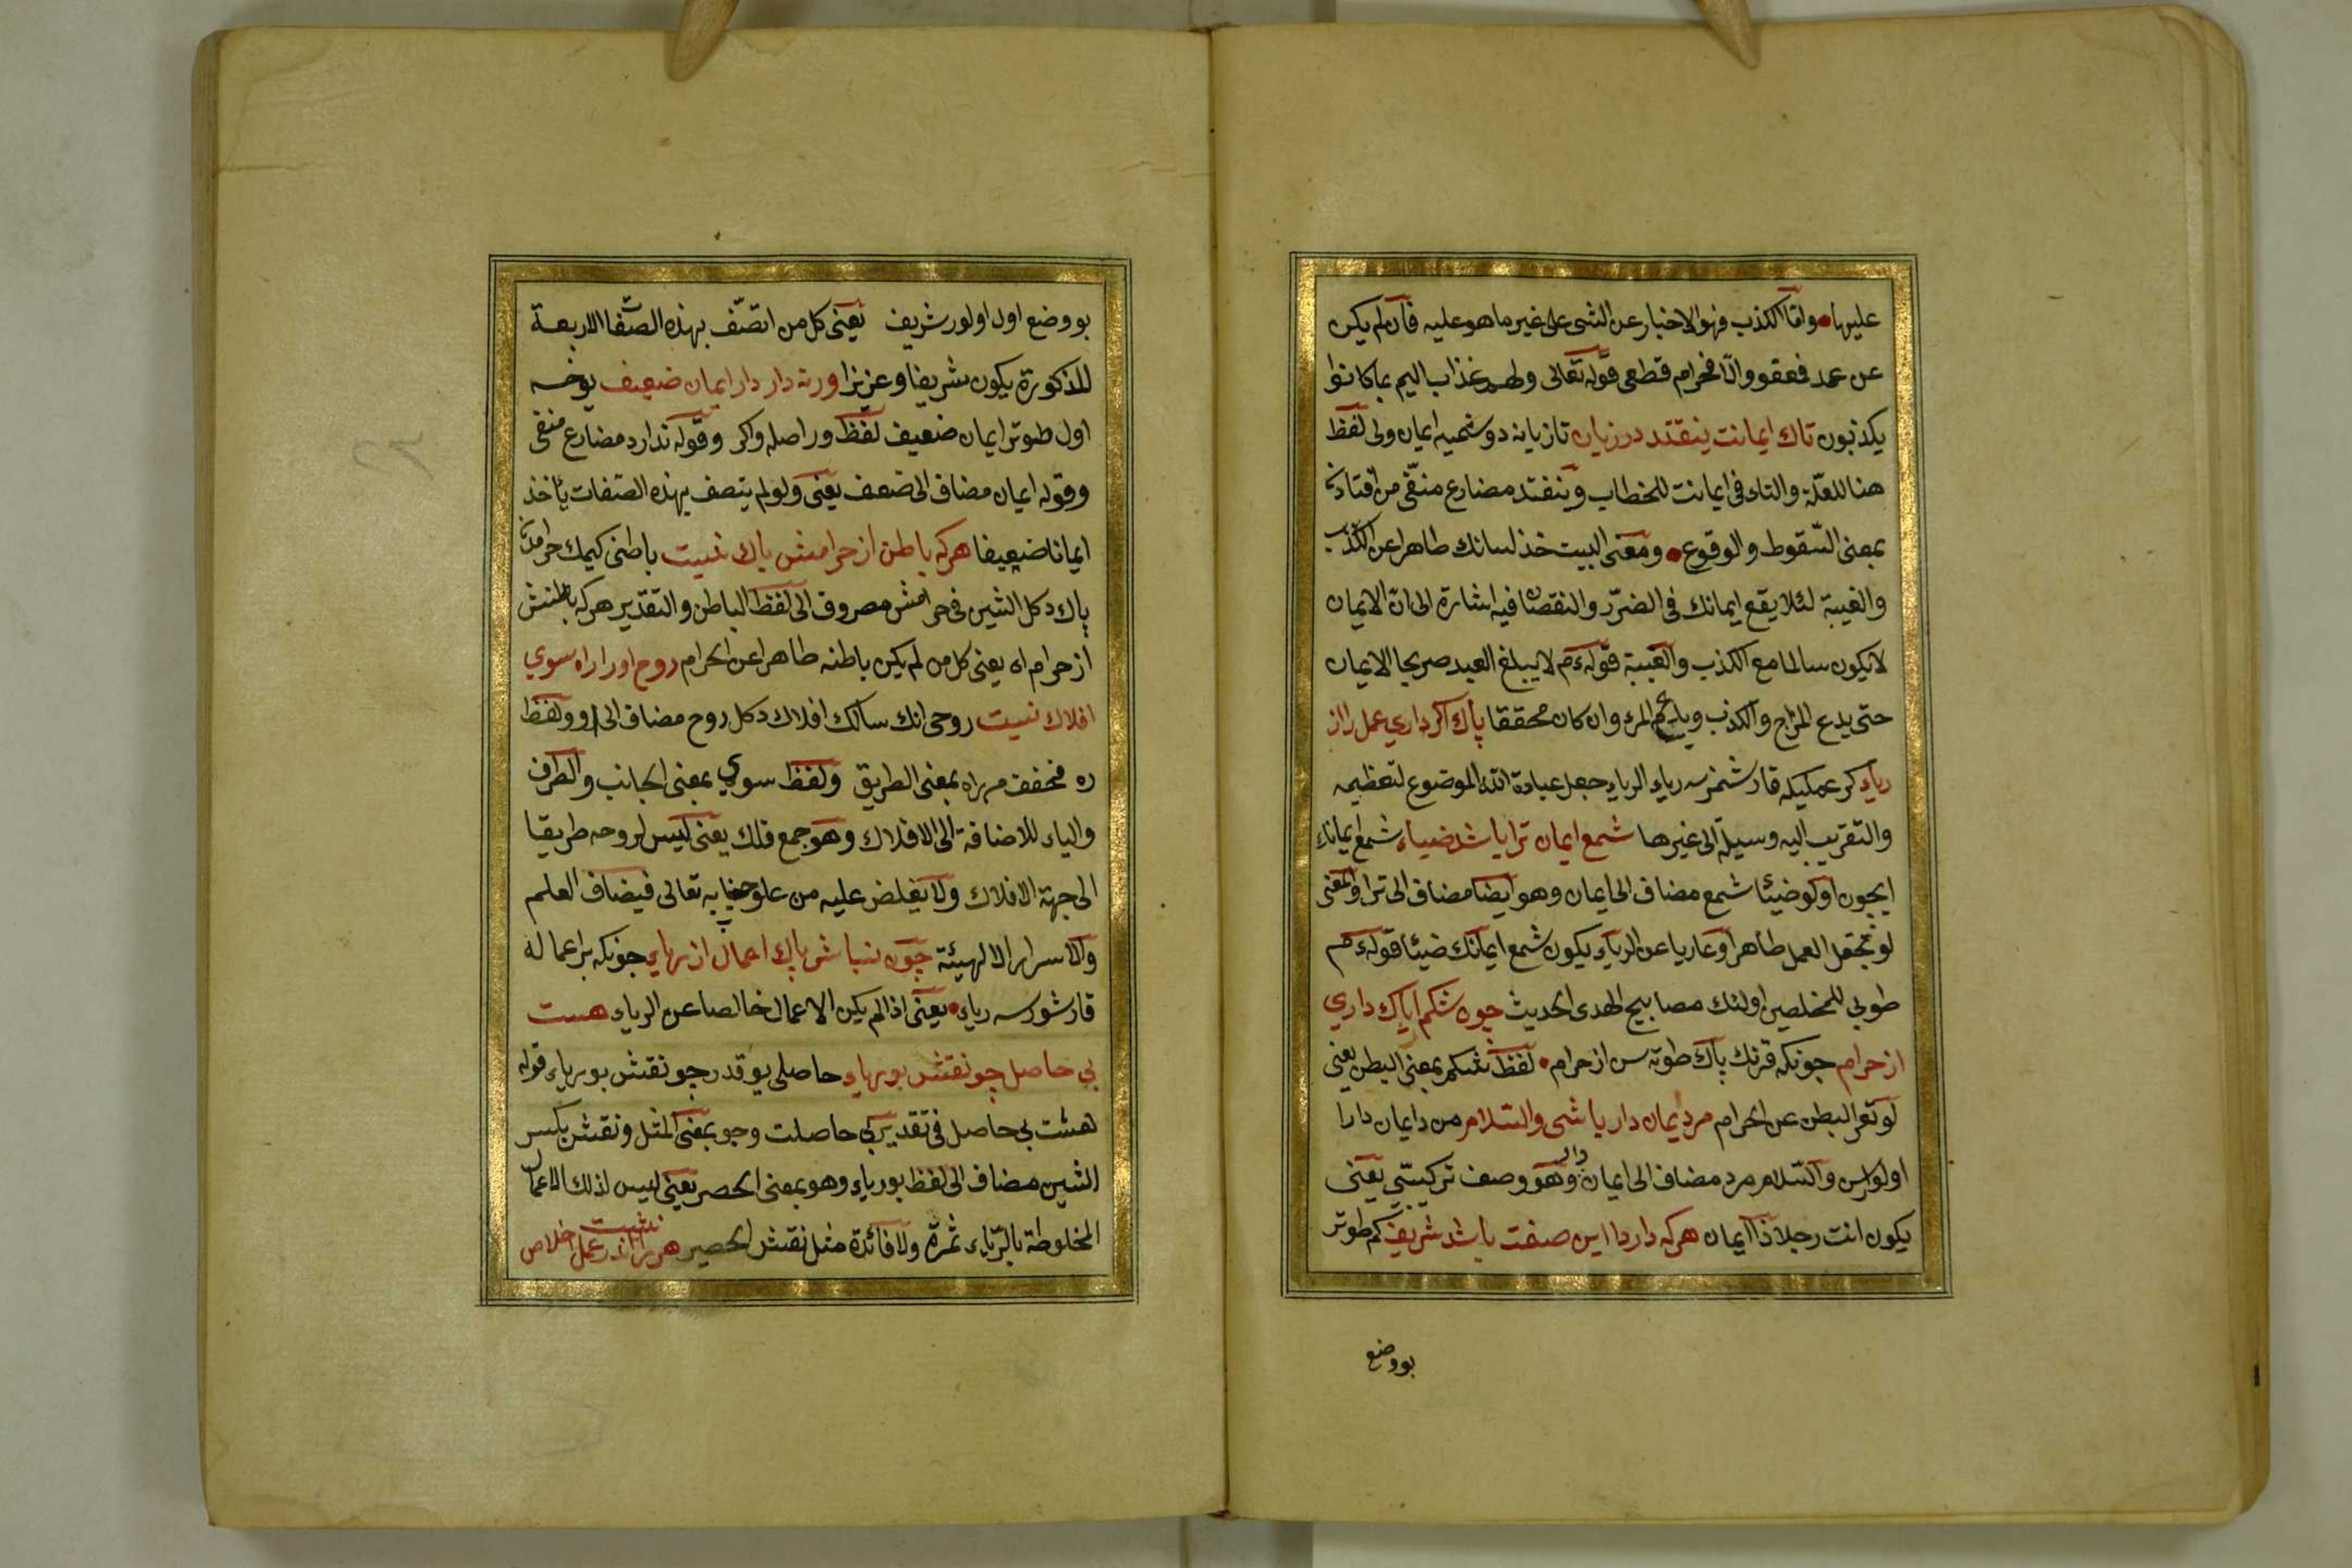 عليها وامّا الكذب فهو الاخبار عن الشی علی غير ما هو عليه فان لم يكن
عن عمد فعفو والّا فحرام قطعی قوله تعالی ولهم عذاب اليم بما كانوا
يكذبون تاك ايمانت نيفتد در زيان تا زيانه دوشميه ايمان ولی لفظ
هنا للعلّة والتاء فی ايمانت للخطاب و نيفتد مضارع منفّی من افتادن
بمعنی السّقوط والوقوع ومعنی البيت خذ لسانك طاهرا عن الكذب
والغيبة لئلا يقع ايمانك فی الضرر والنقصان فيه اشارة الی ان الايمان
لا يكون سالما مع الكذب والغيبة قوله ءم لا يبلغ العبد صريحا الايمان
حتی يدع المزاح والكذب ويدع المرء وان كان محققا پاك اكر داري عمل را از
رياء كر عملكيله قارشمزسه رياء الرياء جعل عبادة الله الموضوع لتعظيمه
والتقرب اليه وسيلة الی غيرها شمع ايمان ترا باشد ضياء شمع ايمانك
ايچون اولو ضيئا شمع مضاف الی ايمان وهو ايضا مضاف الی ترا والمعنی
لو تجعل العمل طاهرا وعاريا عن الرياء يكون شمع ايمانك ضيئا قوله ءم
طوبي للمخلصين اولئك مصابيح الهدی الحديث چون شكم را پاك داري
از حرام چونكه قرنك پاك طوته سن از حرام لفظ شكم بمعنی البطن يعنی
لو تعر البطن عن الحرام مرد ايمان دار باشی والسّلام من دايمان دارا
اولورسن والسّلام مرد مضاف الی ايمان دار وهو وصف تركيبّي يعنی
يكون انت رجلا ذا ايمان هركه دارد اين صفت باشد شريف كم طوتر
بو وضع
بو وضع اول اولور شريف يعنی كل من اتصّف بهذه الصّفات الاربعة
المذكورة يكون شريفا وعزيزا ورنه دارد دار ايمان ضعيف يوخسه
اول طوتر ايمان ضعيف لفظ ور اصله واكر وقوله ندارد مضارع منفی
وقوله ايمان مضاف الی ضعف يعنی ولو لم يتصف بهذه الصّفات يأخذ
ايمانا ضعيفا هركه باطن از حرامش پاك نيست باطنی كيمك حرامدن
پاك دكل الشين فی حرامش مصروف الی لفظ الباطن والتقدير هركه باطنش
از حرام اه يعنی كل من لم يكن باطنه طاهرا عن الحرام روح اورا راه سوي
افلاك نيست روحی انك سالك افلاك دكل روح مضاف الی او ولفظ
ره مخفف من راه بمعنی الطريق ولفظ سوي بمعنی الجانب والطرف
والياء للاضافة الی الافلاك وهو جمع فلك يعنی ليس لروحه طريقا
الی جهة الافلاك ولا يفلض عليه من علو جنابه تعالی فيضاف العلم
والاسرار الالهيئة چون نباشد پاك اعمال از رياء چونكه بر اعماله
قارشورسه رياء يعنی اذا لم يكن الاعمال خالصا عن الرياء هست
بي حاصل چو نقش بورياء حاصلی يوقدر چو نقش بورياء قوله
هست بي حاصل فی تقدير كي حاصلت وچو بمعنی المثل ونقش بكسر
الشين مضاف الی لفظ بورياء وهو بمعنی الحصر يعنی ليس لذلك الاعمال
المخلوطة بالرّياء ثمرة ولا فائدة مثل نقش الحصير هركرا اندر عمل اخلاص نيست